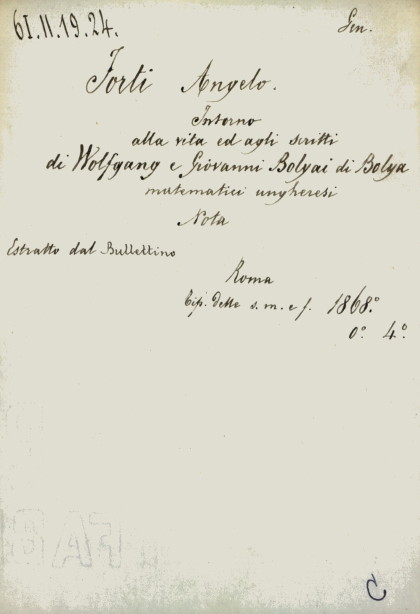 61.11.19.24.
Gen.
Forti Angelo.
Intorno
alla vita ed agli scritti
di Wolfgang e Giovanni Bolyai di Bolya
matematici ungheresi
Nota
Estratto dal Bullettino
Roma
Tip. delle s. m. e f. 1868.°
0.° 4.°
C